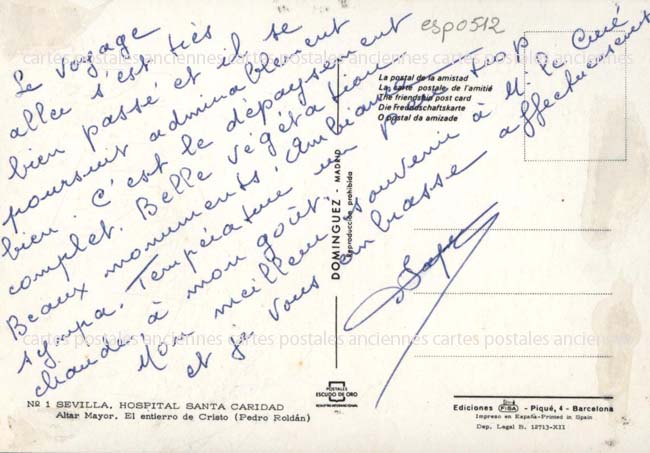 esp0512
Le voyage
aller s'est très
bien passé et il se
poursuit admirablement
bien. C'est le dépaysement
complet. Belle végétation
Beaux monuments, ambiance
sympa. Température un peu trop
chaude, à mon goût.
Mon meilleur souvenir à M. le Curé
et je vous embrasse affectueusement
La postal de la amistad
La carte postale de l'amitié
The friendship post card
Die Freundschaftskarte
O postal da amizade
DOMINGUEZ - MADRID
Reproducción prohibida
POSTALES
ESCUDO DE ORO
Nº 1 SEVILLA. HOSPITAL SANTA CARIDAD
Altar Mayor. El entierro de Cristo (Pedro Roldán)
Ediciones FISA - Piqué, 4 - Barcelona
Impreso en España-Printed in Spain
Dep. Legal B. 12713-XII
cartes postales anciennes cartes postales anciennes cartes postales anciennes
cartes postales anciennes cartes postales anciennes cartes postales anciennes